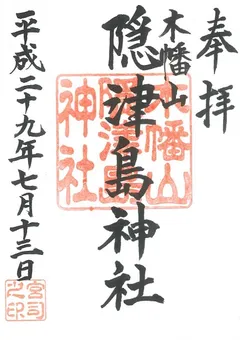 奉拝
木幡山
隠津島神社
平成二十九年七月十三日
木幡山
隠津島
神社
宮司
之印